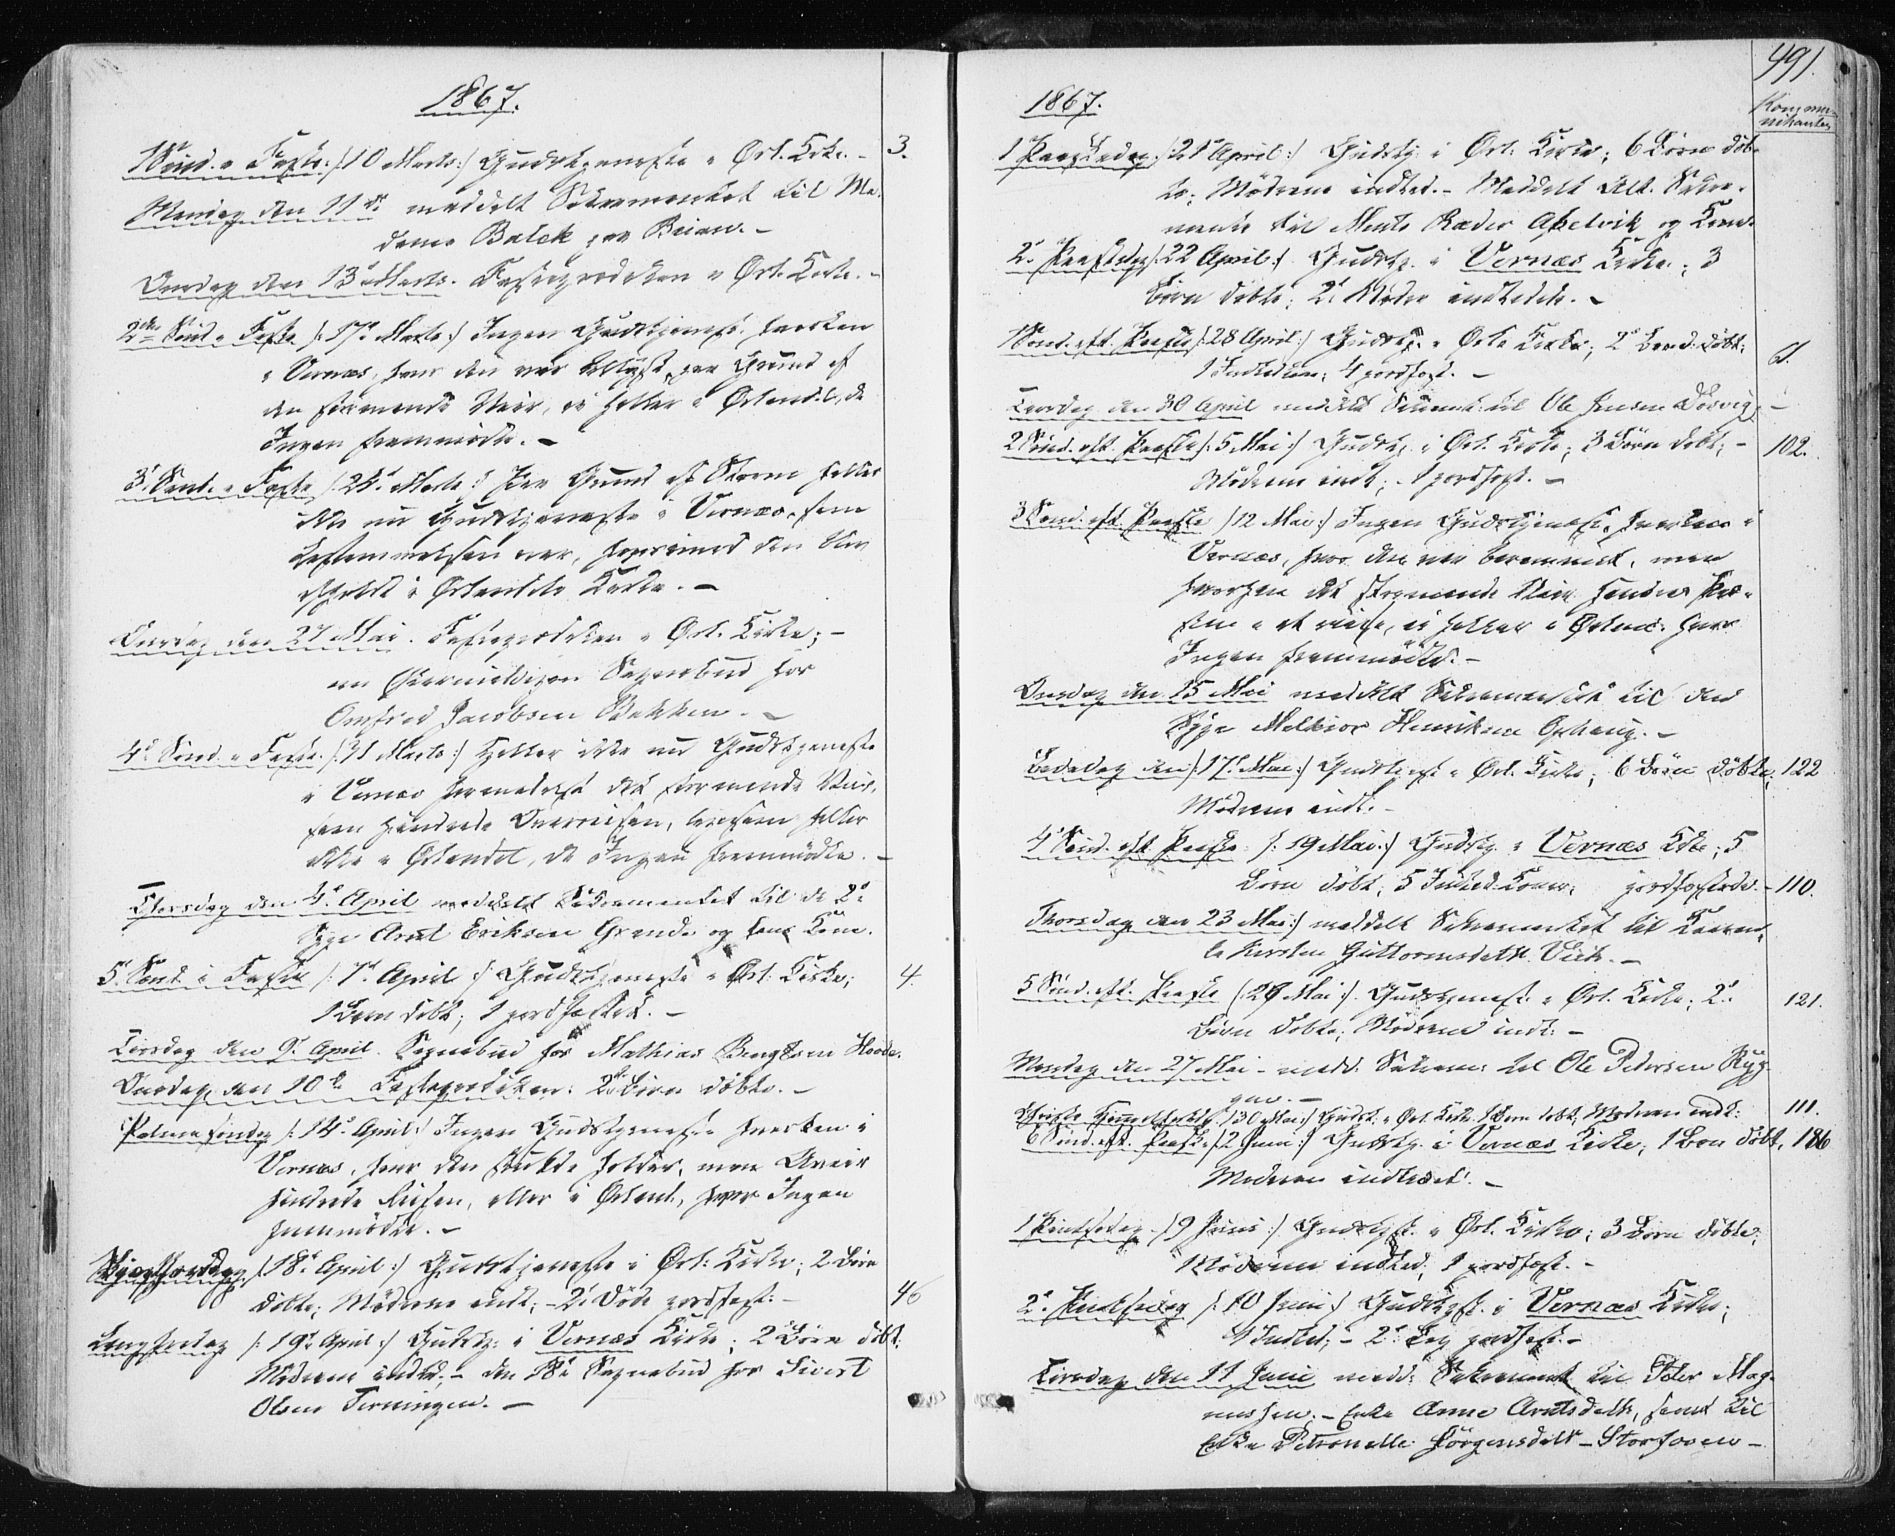 1867.
1 Sønd. i Faste. /: 10 Marts :/ Gudstjeneste i Ørl. Kirke. – 3.
Mandag den 11te meddelt Sakramentet til Ma-
dame Balck paa Beian. –
Onsdag den 13de Marts. Fasteprædiken i Ørl. Kirke. –
2den Sønd. i Faste /: 17de Marts :/ Ingen Gudstjeneste hverken
i Vernæs, hvor den var belyst, paa Grund af
den stormende Veir, ei heller i Ørlandet, da
Ingen fremmødte. –
3die Sønd. i Faste /: 24de Marts :/ Paa Grund af Storm heller
ikke nu Gudstjeneste i Vernæs, som
Bestemmelsen var, hvorimod den blev
afholdt i Ørlandets Kirke. –
Onsdag den 27 Mai. Fasteprædiken i Ørl. Kirke; –
Sognebud for
Jacobsen Bakken. –
4de Sønd. i Faste. /: 31 Marts :/ Heller ikke nu Gudstjeneste
i Vernæs formedelst det stormende Veir,
som hindrede Overreisen, ligesom heller
ikke i Ørlandet, da Ingen fremmødte. –
Thorsdag den 4de April meddelt Sakramentet til de 2de
Syge Arnt Eriksen Grande og hans Kone.
5te Sønd. i Faste /: 7de April :/ Gudstjeneste i Ørl. Kirke; 4.
1 Barn døbt; 1 jordfæstet. –
Tirsdag den 9de April. Sognebud for Mathias Bengtsen Hovde.
Onsdag den 10de Fasteprædiken: 2de Børn døbte. –
Palmesøndag /: 14de April :/ Ingen Gudstjeneste hverken i
Vernæs, hvor den skulde holdes, men Uveir
hindrede Reisen, eller i Ørland, hvor Ingen
fremmødte. –
Skjærthorsdag /: 18de April :/ Gudstjeneste i Ørl. Kirke; 2 Børn
døbte; Mødrene indl. – 2de Døde jordfæst. – 46
Langfredag /: 19de April :/ Gudstj. i Vernæs Kirke; 2 Børn døbt.
Mødrene indled. – den 18de Sognebud for Sivert
Olsen Terningen. –
491.
Kommu-
nikanter
1867.
1 Paaskedag /: 21de April :/ Gudstj. i Ørl. Kirke; 6 Børn døb-
te; Mødrene indled. – Meddelt Alt. Sakra-
mente til Mento Rader Apelvik og Kone.
2den Paaskedag /: 22 April :/ Gudstj. i Vernæs Kirke; 3
Børn døbte; 2de Mødre indledede. –
1 Sønd. eft. Paaske /: 28 April :/ Gudstj. i Ørl. Kirke; 2de Børn døbt.
1 Indledon; 4 jordfæst. –
Tirsdag den 30 April meddelt Sacrament til Ole Jensen Døsvig –
2 Sønd. eft. Paaske /: 5 Mai :/ Gudstj. i Ørl. Kirke; 3 Børn døbt; – 102.
Mødrene indl.; 1 jordfæst. –
3 Sønd. eft. Paaske /: 12 Mai :/ Ingen Gudstjeneste, hverken i
Vernæs, hvor den var berammet, men
det stormende Veir hindrede Præ-
sten i at reise, ei heller i Ørland hvor
Ingen fremmødte. –
Onsdag den 15 Mai meddelt Sakramentet til den
Syge Melkior Henriksen Ophaug. –
Bededag den /: 17de Mai :/ Gudstjenst. i Ørl. Kirke; 6 Børn døbte, 122
Mødrene indl. –
4de Sønd. eft. Paaske /: 19 Mai :/ Gudstj. i Vernæs Kirke; 5
Børn døbt; 5 Indled. Koner; jordfæstede. – 110.
Thorsdag den 23 Mai :/ meddelt Sakramentet til
Kirsten Guttormsdatt. Viik. –
5 Sønd. eft. Paaske /: 26 Mai :/ Gudstjenest. i Ørl. Kirke; 2de 121.
Børn døbte; Mødrene indl. –
Mandag den 27 Mai – medd. Sakram. til Ole Petersen Ryg-
gen. –
Christi Himmelfartsd. /: 30 Mai :/ Gudst. i Ørl. Kirke. 1 Barn døbt, Moderen indl. 111.
6 Sønd. eft. Paaske /: 2 Juni :/ Gudstj. i Vernæs Kirke; 1 Barn døbt, 186
Moderen indledet. –
1 Pintsedag /: 9 Juni :/ Gudstjst. i Ørl. Kirke; 3 Børn døbte;
Mødrene indled; 1 jordfæst. –
2den Pintsedag /: 10 Juni :/ Gudstjst. i Vernæs Kirke;
1 Indled; – 2de Lig jordfæst. –
Tirsdag den 11 Juni medd: Sakrament til Peter Mag-
nussen. – Enke Anne Arntsdatt, samt til
Enke Petronelle Jørgensdatt – Storfosen –